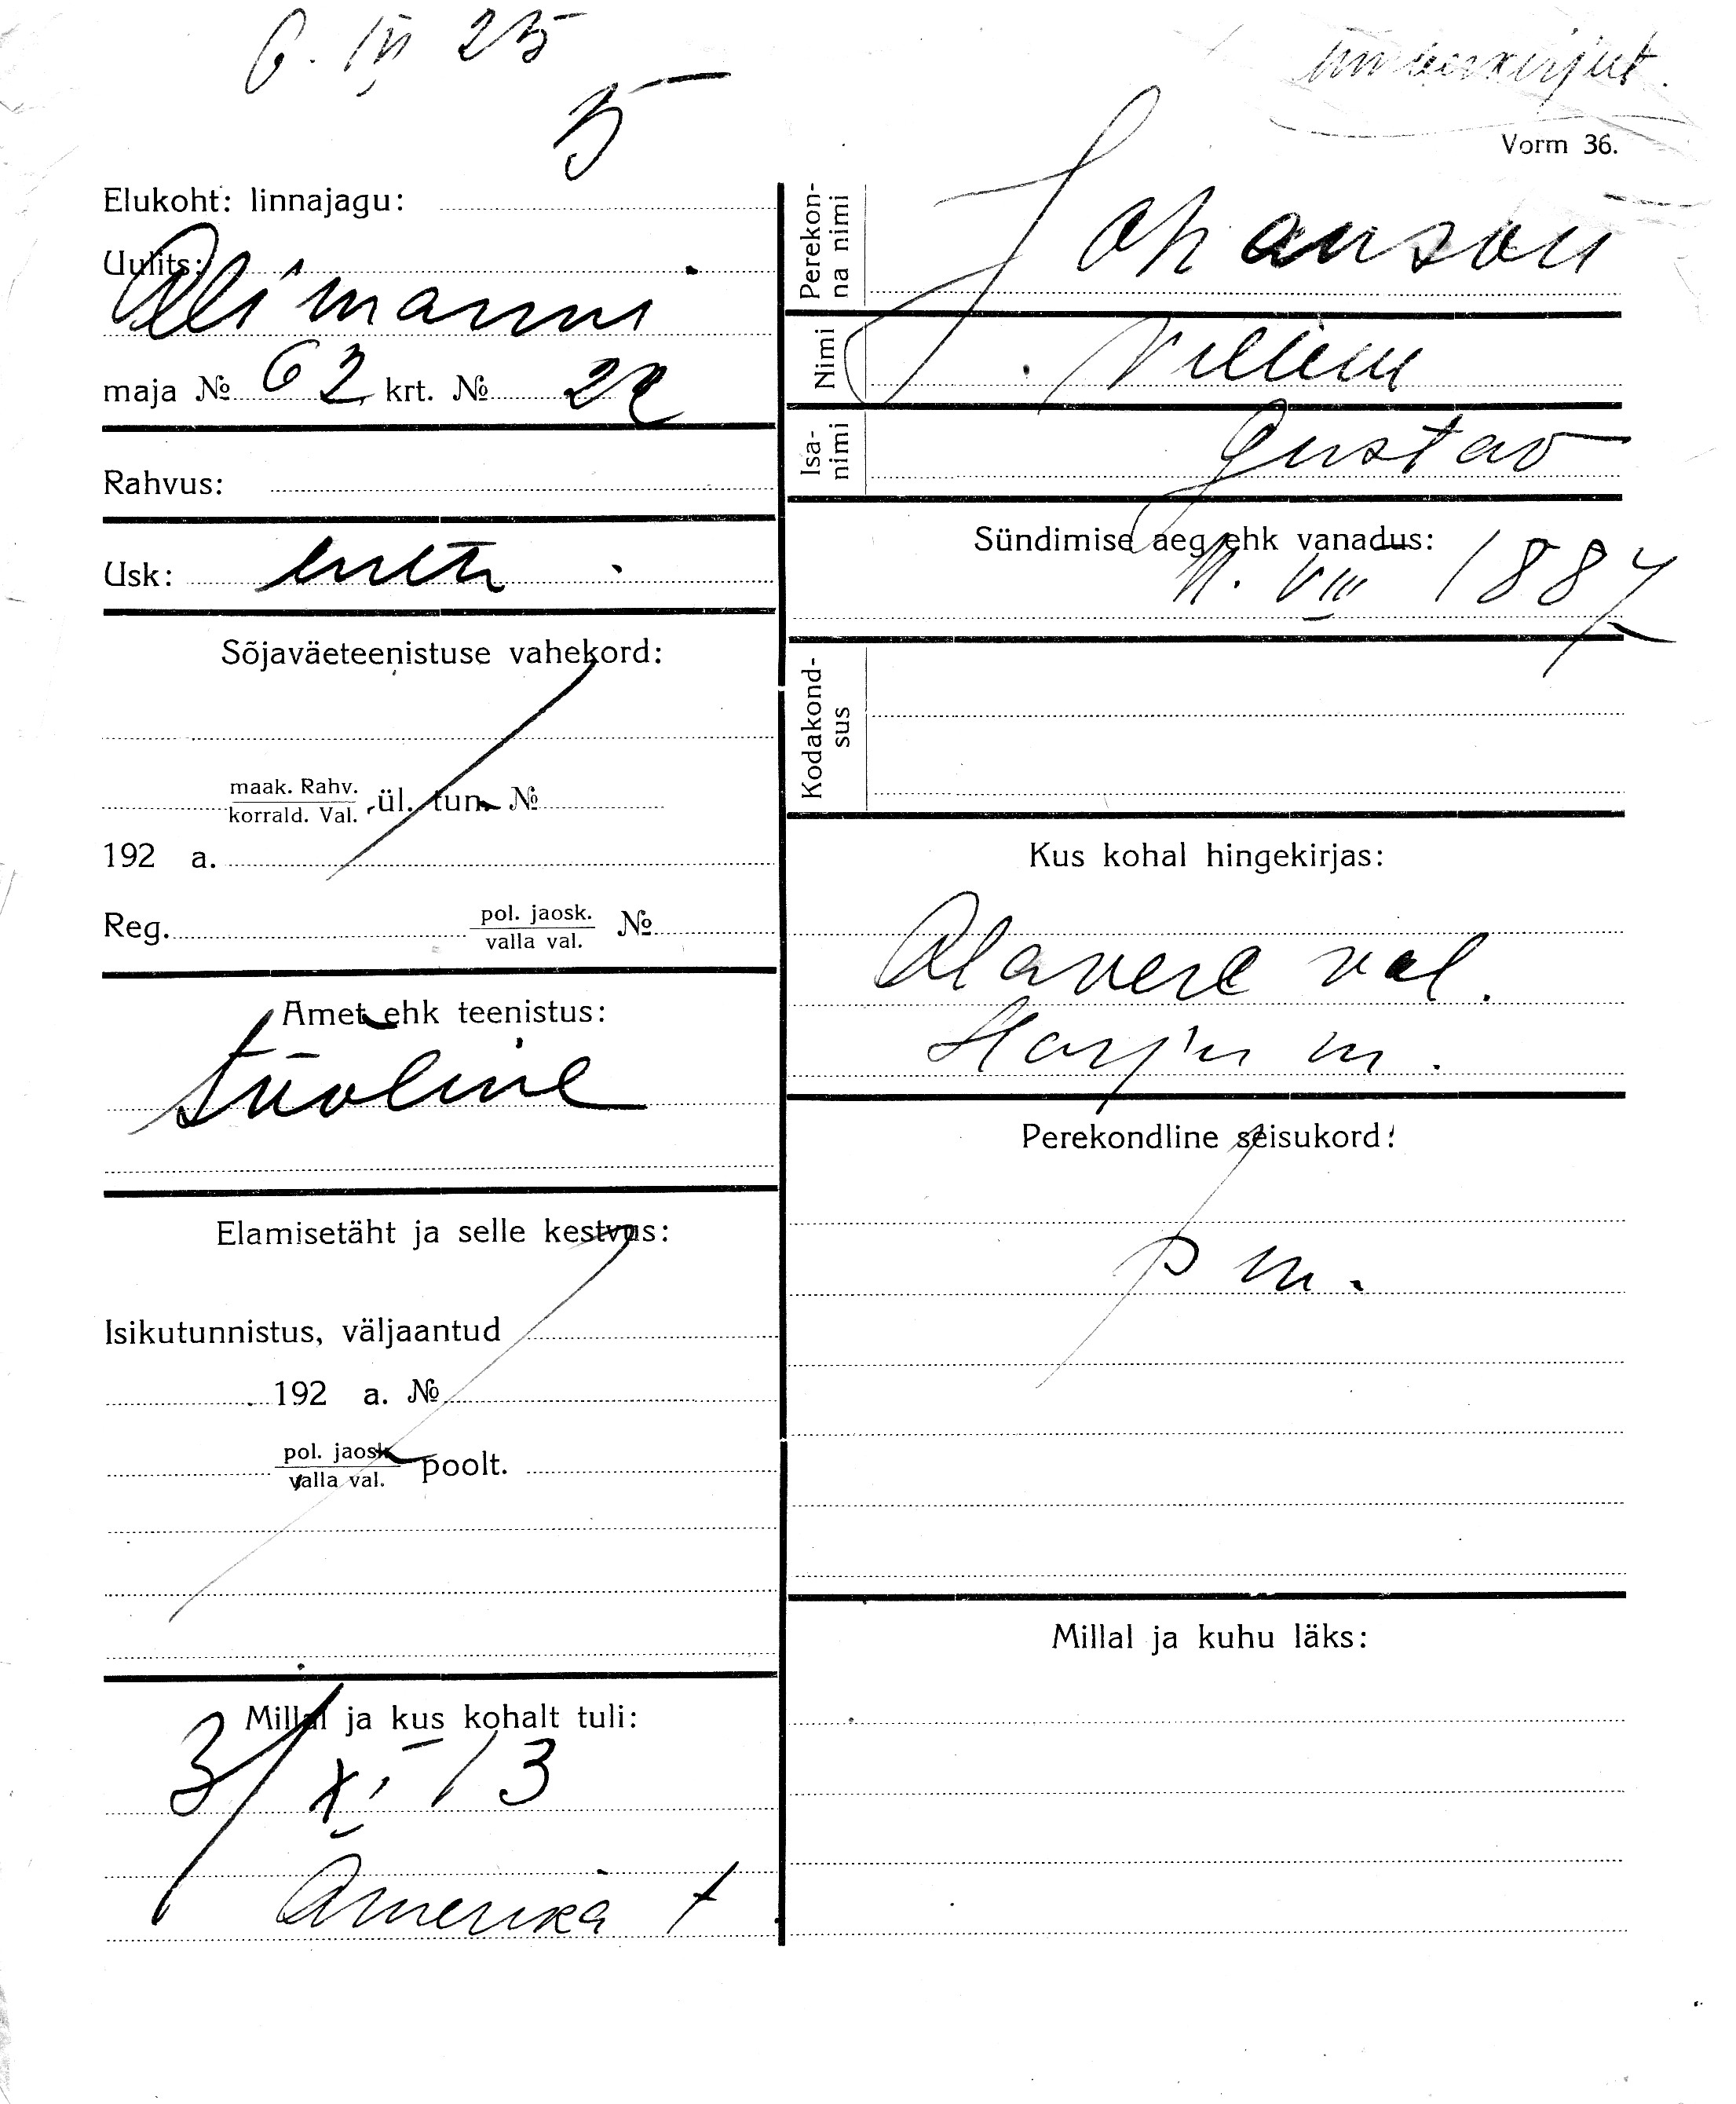 6. IV 25
5
ümberkirjut.
Vorm 36.
Elukoht: linnajagu:
Uulits:
maja № 62 krt. №
Rahvus:
Usk: luth
Sõjaväeteenistuse vahekord:
maak. Rahv.
korrald. Val. ül. tun. №
192 a.
Reg. pol. jaosk. №
valla val.
Amet ehk teenistus:
tööline
Elamisetäht ja selle kestvus:
Isikutunnistus, väljaantud
192 a. №
pol. jaosk.
valla val. poolt.
Millal ja kus kohalt tuli:
3/XI 13
Amerika t
Perekon-
na nimi
Johanson
Nimi
Villem
Isa-
nimi
Gustav
Sündimise aeg ehk vanadus:
11. VIII 1887
Kodakond-
sus
Kus kohal hingekirjas:
Alavere val.
Harju m.
Perekondline seisukord:
p m.
Millal ja kuhu läks: